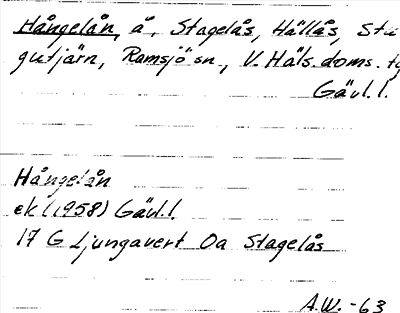 Hångelån, å, Stagelås, Hällås, Stu
gutjärn, Ramsjö sn, V. Häls. doms. t
Gävl. l.
Hångelån
ek (1958) Gävl. l.
17 G Ljungavert Oa Stagelås
A.W. -63